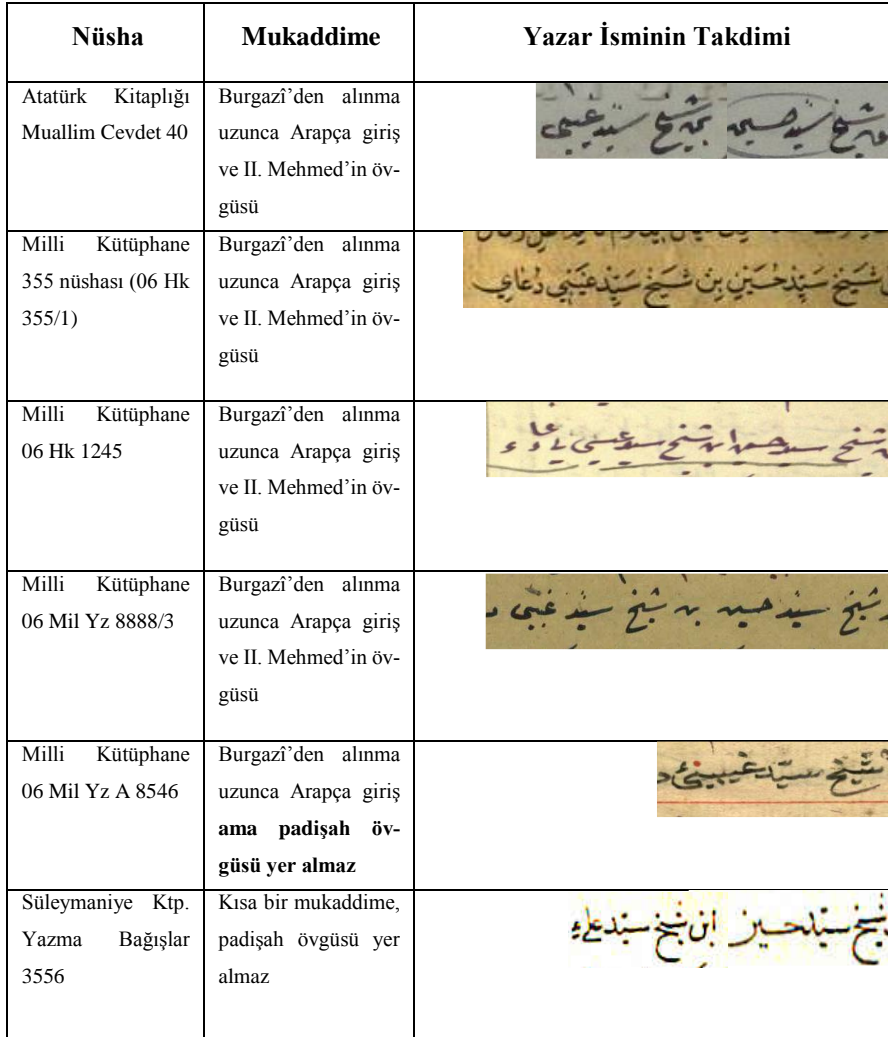 Nüsha
Mukaddime
Yazar İsminin Takdimi
Atatürk Kitaplığı
Muallim Cevdet 40
Burgazî’den alınma
uzunca Arapça giriş
ve II. Mehmed’in öv-
güsü
شيخ سيد حسين بن شيخ سيد غيبى
Milli Kütüphane
355 nüshası (06 Hk
355/1)
Burgazî’den alınma
uzunca Arapça giriş
ve II. Mehmed’in öv-
güsü
شَيخ سَيِّد حُسَيْنِ بِن شَيخ سَيِّد غَيْبِى دُعَاى
Milli Kütüphane
06 Hk 1245
Burgazî’den alınma
uzunca Arapça giriş
ve II. Mehmed’in öv-
güsü
شيخ سيد حسين ابن شيخ سيد
Milli Kütüphane
06 Mil Yz 8888/3
Burgazî’den alınma
uzunca Arapça giriş
ve II. Mehmed’in öv-
güsü
شيخ سيد حسين بن شيخ سيد غيبى
Milli Kütüphane
06 Mil Yz A 8546
Burgazî’den alınma
uzunca Arapça giriş
ama padişah öv-
güsü yer almaz
شيخ سيّد
Süleymaniye Ktp.
Yazma Bağışlar
3556
Kısa bir mukaddime,
padişah övgüsü yer
almaz
شيخ سيّد حسين ابن شيخ سيّد